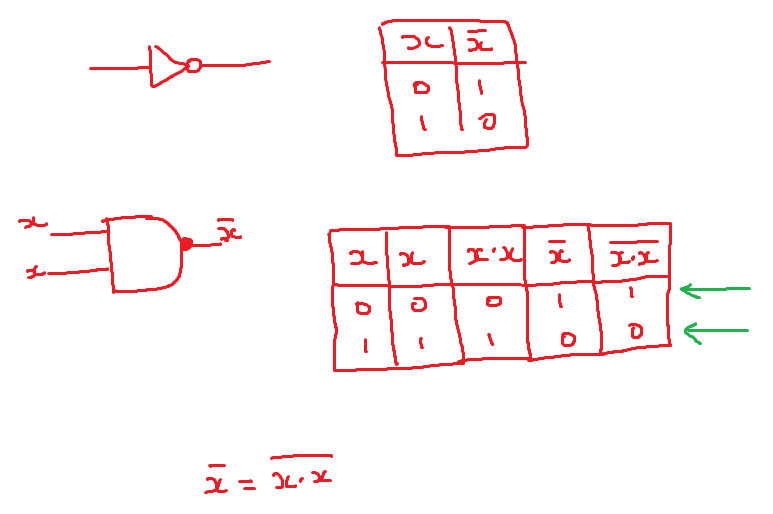 x x̅
0 1
1 0
x
x̅
x
x x x·x x̅ x̅·̅x̅
0 0 0 1 1
1 1 1 0 0
x̅ = x̅·̅x̅